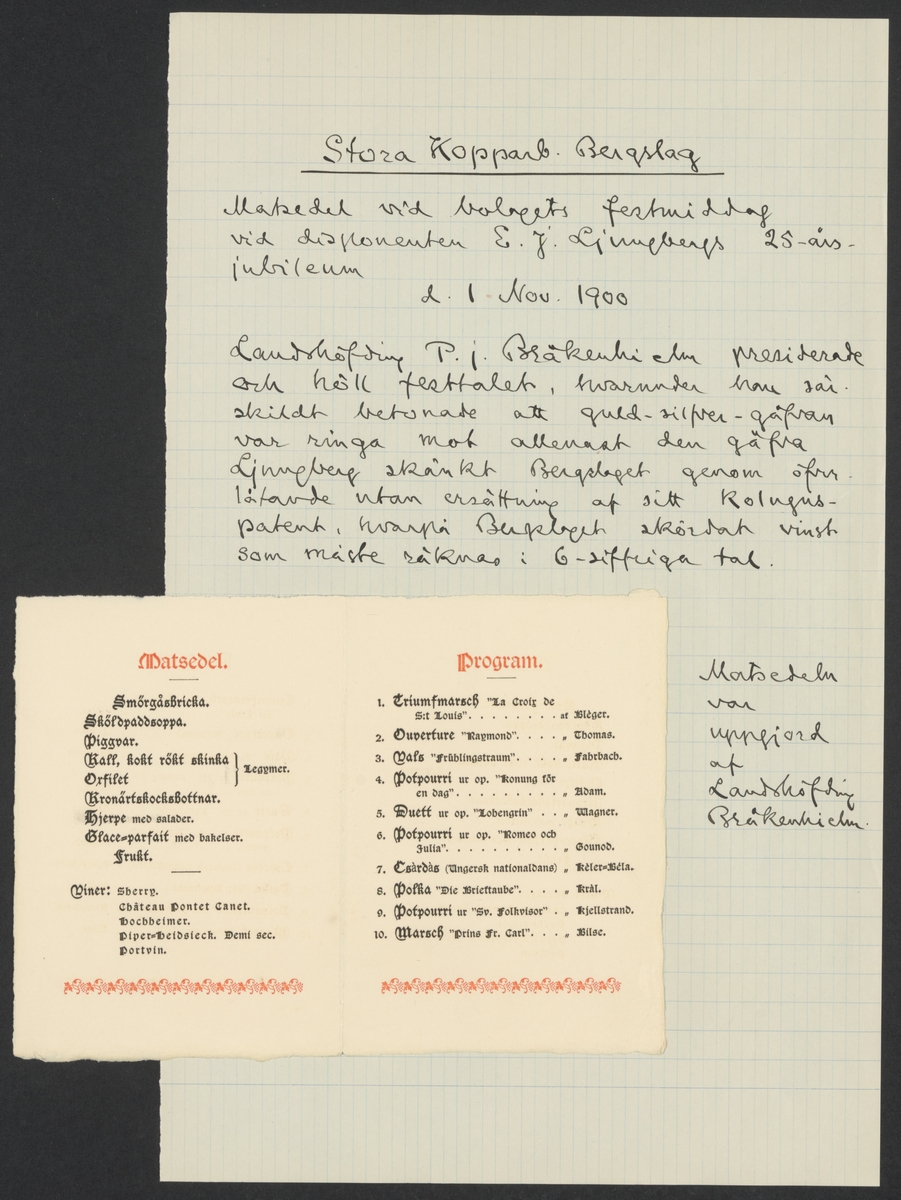 Stora Kopparb. Bergslag
Matsedel vid bolagets festmiddag
vid disponenten E. J. Ljungbergs 25-års-
jubileum
d. 1 Nov. 1900
Landshöfding P. j. Bråkenhielm presiderade
och höll festtalet, hvarunder han sär-
skildt betonade att guld-silfver-gåfvan
var ringa mot allenast den gåfva
Ljungberg skänkt Bergslaget genom öfver-
låtande utan ersättning af sitt Kolugns-
patent, hvarpå Bergslaget skördat vinst
som måste räknas i 6-siffriga tal.
Matsedel.
Smörgåsbricka.
Sköldpaddsoppa.
Piggvar.
Kall, kokt rökt skinka
Oxfilet
Legymer.
Kronärtskocksbottnar.
Hjerpe med salader.
Glace-parfait med bakelser.
Frukt.
Viner: Sherry.
Château Pontet Canet.
Hochheimer.
Piper-Heidsieck. Demi sec.
Portvin.
Program.
1. Triumfmarsch "La Croix de
S:t Louis". . . . . . . . af Blèger.
2. Ouverture "Raymond". . . . „ Thomas.
3. Vals "Frühlingstraum". . . . „ Fahrbach.
4. Potpourri ur op. "Konung för
en dag". . . . . . . . . „ Adam.
5. Duett ur op. "Lohengrin" . . „ Wagner.
6. Potpourri ur op. "Romeo och
Julia". . . . . . . . . . „ Gounod.
7. Csàrdàs (Ungersk nationaldans) „ Kèler-Béla.
8. Polka "Die Brieftaube". . . . „ Kràl.
9. Potpourri ur "Sv. Folkvisor" . „ Kjellstrand.
10. Marsch "Prins Fr. Carl". . . „ Bilse.
Matsedeln
var
uppgjord
af
Landshöfding
Bråkenhielm.